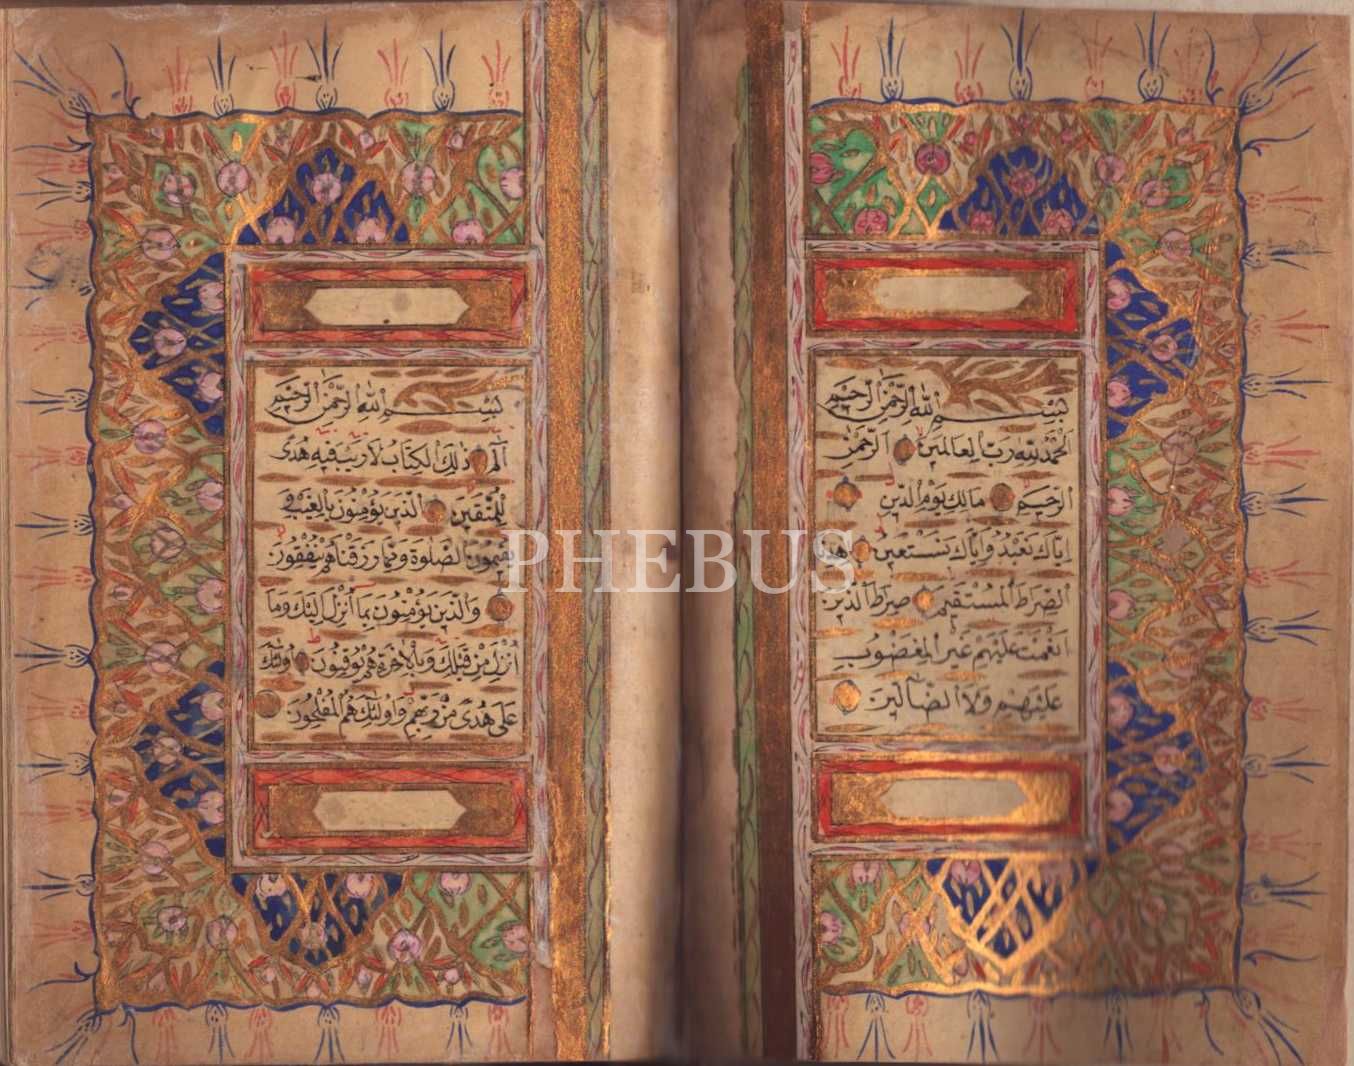 بِسْمِ اللّٰهِ الرَّحْمٰنِ الرَّحِيمِ
اَلْحَمْدُ لِلّٰهِ رَبِّ الْعَالَمِينَ الرَّحْمٰنِ
الرَّحِيمِ مَالِكِ يَوْمِ الدِّينِ
اِيَّاكَ نَعْبُدُ وَاِيَّاكَ نَسْتَعِينُ اِهْدِنَا
الصِّرَاطَ الْمُسْتَقِيمَ صِرَاطَ الَّذِينَ
اَنْعَمْتَ عَلَيْهِمْ غَيْرِ الْمَغْضُوبِ
عَلَيْهِمْ وَلَا الضَّالِّينَ
بِسْمِ اللّٰهِ الرَّحْمٰنِ الرَّحِيمِ
الٓمٓ ذٰلِكَ الْكِتَابُ لَا رَيْبَ فِيهِ هُدًى
لِلْمُتَّقِينَ اَلَّذِينَ يُؤْمِنُونَ بِالْغَيْبِ وَ
يُقِيمُونَ الصَّلٰوةَ وَمِمَّا رَزَقْنَاهُمْ يُنْفِقُونَ
وَالَّذِينَ يُؤْمِنُونَ بِمَا اُنْزِلَ اِلَيْكَ وَمَا
اُنْزِلَ مِنْ قَبْلِكَ وَبِالْاٰخِرَةِ هُمْ يُوقِنُونَ اُولٰئِكَ
عَلٰى هُدًى مِنْ رَبِّهِمْ وَاُولٰئِكَ هُمُ الْمُفْلِحُونَ
PHEBUS